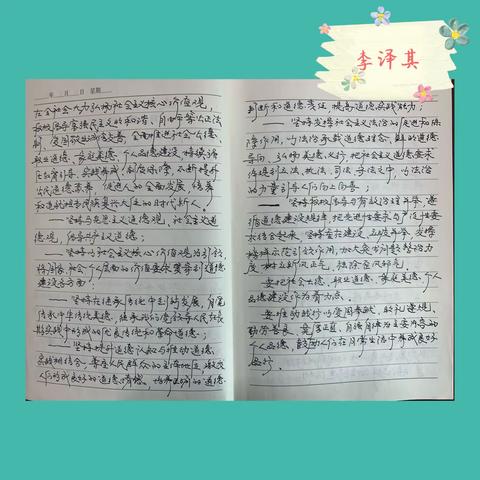 李泽其
年 月 日 星期
在全社会大力弘扬社会主义核心价值观，
积极倡导富强民主文明和谐、自由平等公正法
制、爱国敬业诚信友善，全面推进社会公德、
职业道德、家庭美德、个人品德建设，持续强
化教育引导、实践养成、制度保障，不断提升
公民道德素养，促进人的全面发展，培养
和造就担当民族复兴大任的时代新人。
——坚持马克思主义道德观、社会主义道
德观，倡导共产主义道德；
——坚持以社会主义核心价值观为引领，
将国家、社会、个人层面的价值要求贯穿到道德
建设各方面；
——坚持在继承传统中创新发展，自觉
传承中华传统美德，继承我们党领导人民在长
期实践中形成的优良传统和革命道德；
——坚持提升道德认知与推动道德
实践相结合，尊重人民群众的主体地位，激发
人们形成良好的道德情感、培养正确的道德
判断和道德责任，提高道德实践能力；
——坚持发挥社会主义法治的促进和保
障作用，以法治承载道德理念、鲜明道德
导向、弘扬美德义行，把社会主义道德要求
体现到立法、执法、司法、守法之中，以法治
的力量引导人们向上向善；
——坚持积极倡导与有效治理并举，遵
循道德建设规律，把先进性要求与广泛性要
求结合起来，坚持重在建设、立破并举，发挥
榜样示范引领作用，加大突出问题整治力
度，树立新风正气，祛除歪风邪气。
要把社会公德、职业道德、家庭美德、个人
品德建设作为着力点。
要推动践行以爱国奉献、明礼遵规、
勤劳善良、宽厚正直、自强自律为主要内容的
个人品德，鼓励人们在日常生活中养成良好
品行。